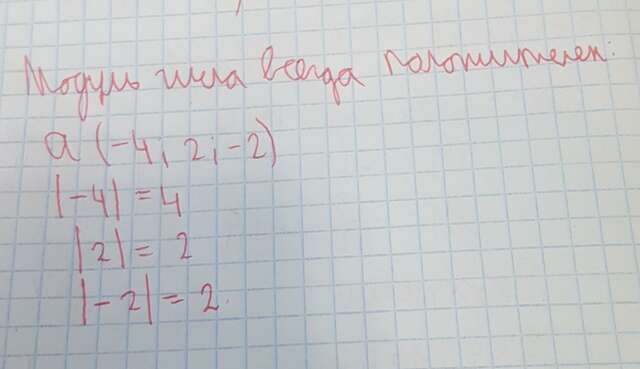 Модуль числа всегда положителен:
a (-4; 2; -2)
|-4| = 4
|2| = 2
|-2| = 2.